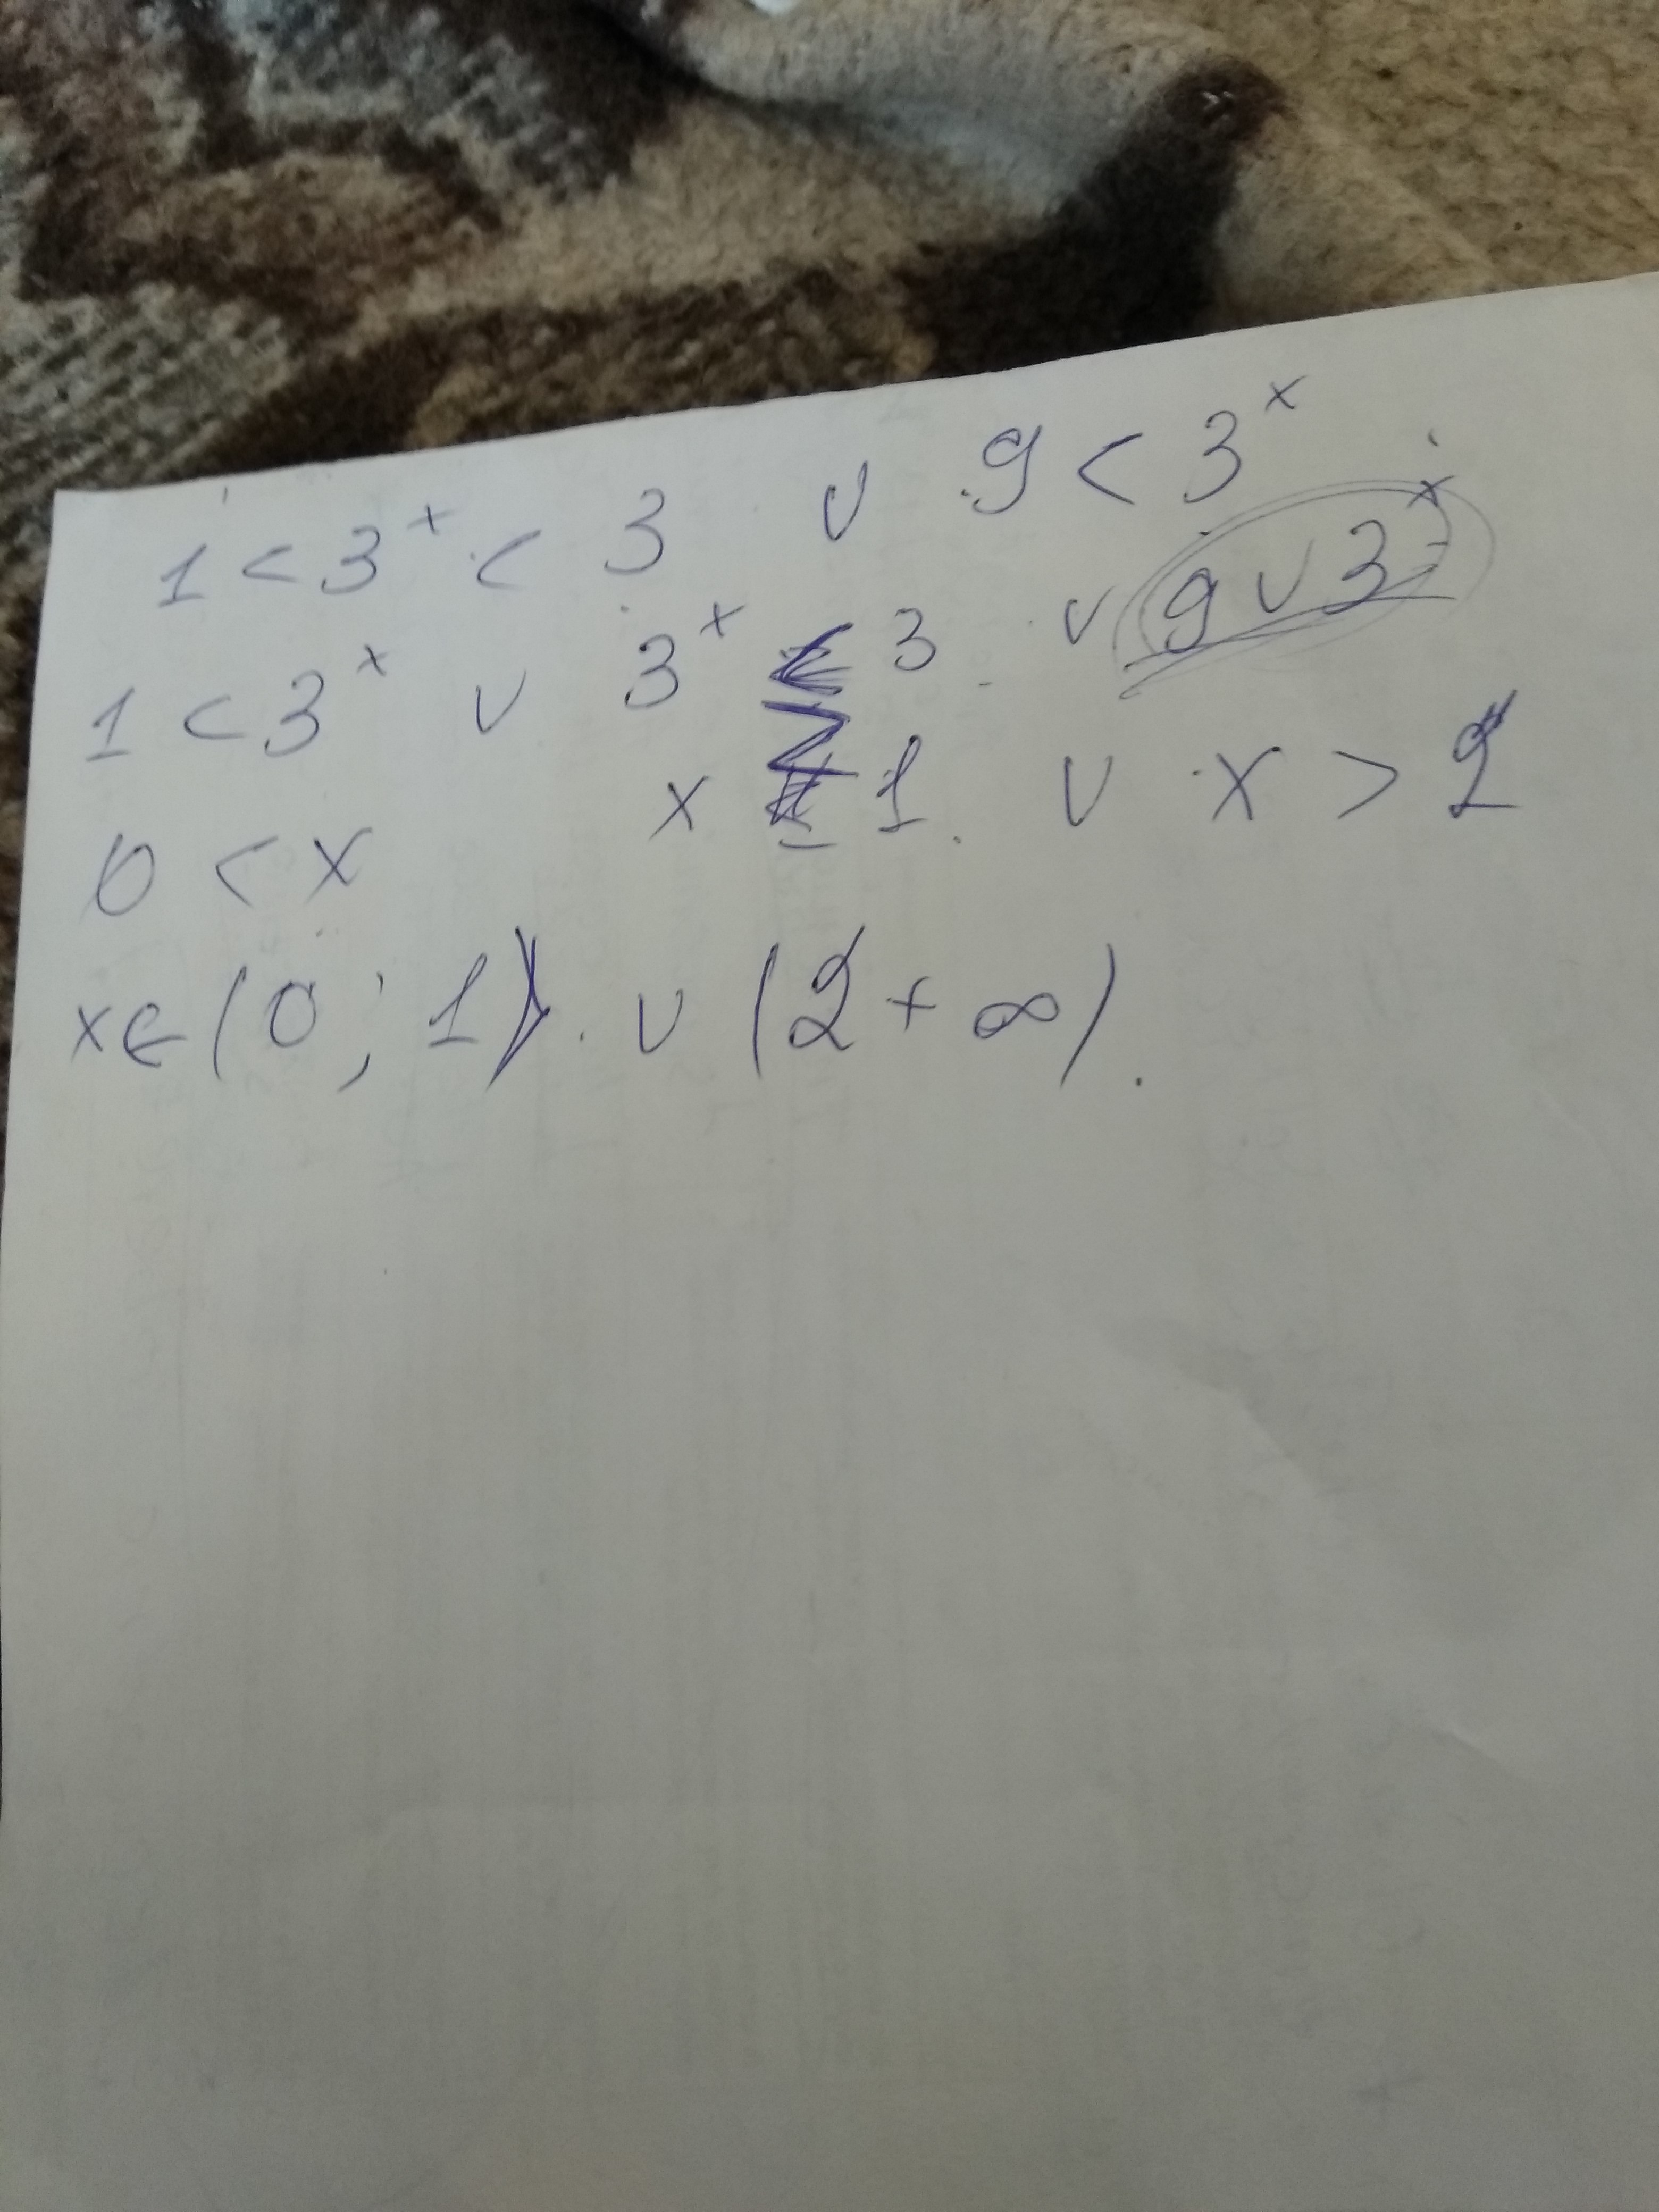 1 < 3^x < 3 ∪ 9 < 3^x
1 < 3^x ∪ 3^x 3 ∪ 9 ∪ 3^x
0 < x x 1 ∪ x > 2
x ∈ (0; 1) ∪ (2 + ∞).